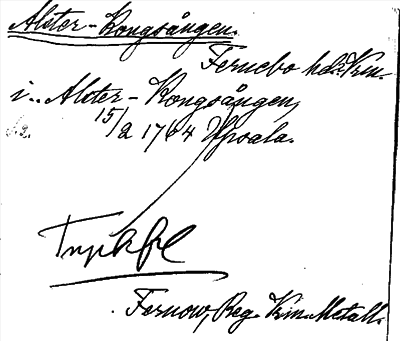 Alster-Kongsången.
Fernebo hd. Krm.
i. Alster-Kongsången,
15/2 1764 Upsala.
Tryckfel
Fernow, Reg. Krm. Metall.